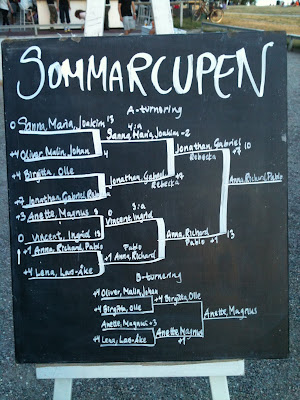 SOMMARCUPEN
A-turnering
0 Sanna, Maria, Joakim 13
Sanna, Maria, Joakim -2
+4 Oliver, Malin, Johan 4
Jonathan, Gabriel +7 10
Rebecka
+4 Birgitta, Olle
Jonathan, Gabriel
Rebecka
+7 Jonathan Gabriel Rebecka
Anna, Richard, Pablo
+3 Anette, Magnus 9
0
Vincent, Ingrid
0 Vincent, Ingrid 13
Anna, Richard
Pablo +1 13
+1 Anna, Richard, Pablo
Pablo
+1 Anna, Richard
+4 Lena, Lars-Åke
B-turnering
+4 Oliver, Malin, Johan
+4 Birgitta, Olle
+4 Birgitta, Olle
Anette, Magnus
Anette, Magnus +3
Anette Magnus
+4 Lena, Lars-Åke